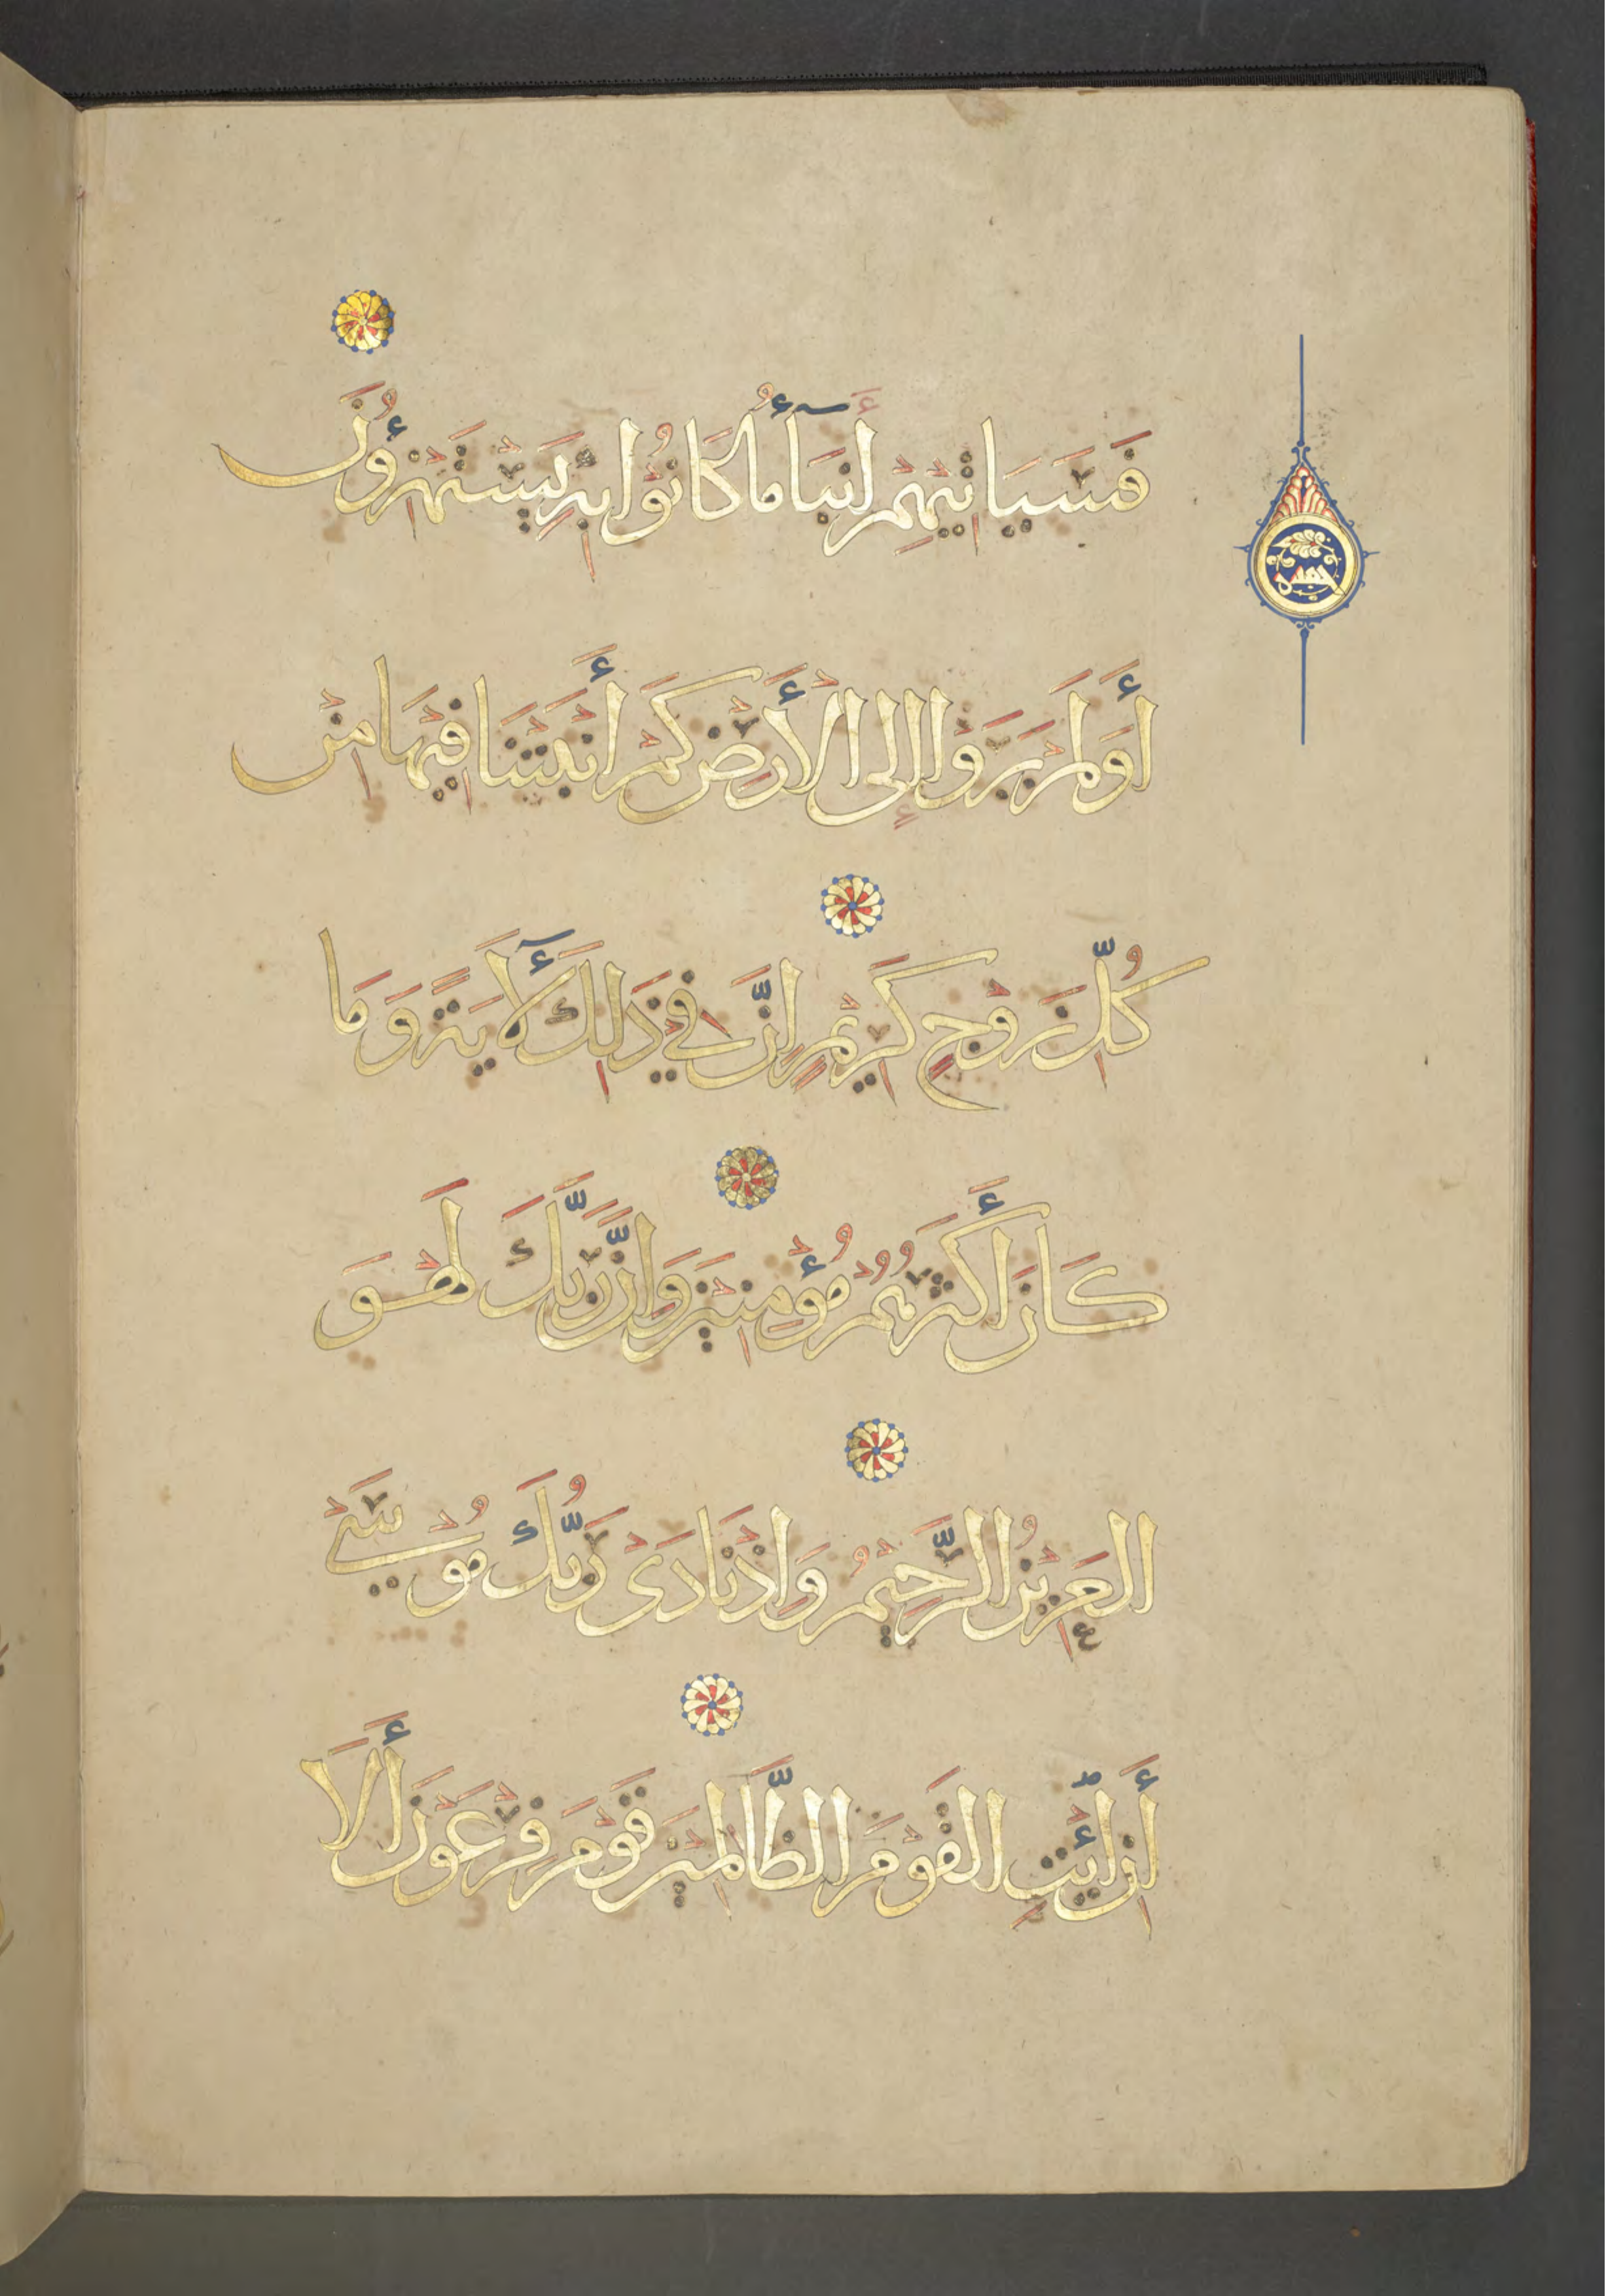 فَسَيَاتِيْهِمْ أَنْبَآءُ مَا كَانُوْا بِهِ يَسْتَهْزِءُوْنَ
خمسه
أَوَلَمْ يَرَوْا إِلَى الْأَرْضِ كَمْ أَنْبَتْنَا فِيْهَا مِنْ
كُلِّ زَوْجٍ كَرِيْمٍ إِنَّ فِيْ ذَلِكَ لَأٓيَةً وَمَا
كَانَ أَكْثَرُهُمْ مُؤْمِنِيْنَ وَإِنَّ رَبَّكَ لَهْوَ
الْعَزِيْزُ الرَّحِيْمُ وَإِذْ نَادَىْ رَبُّكَ مُوْسَىْ
أَنِ ائْتِ الْقَوْمَ الظَّالِمِيْنَ قَوْمَ فِرْعَوْنَ أَلَا